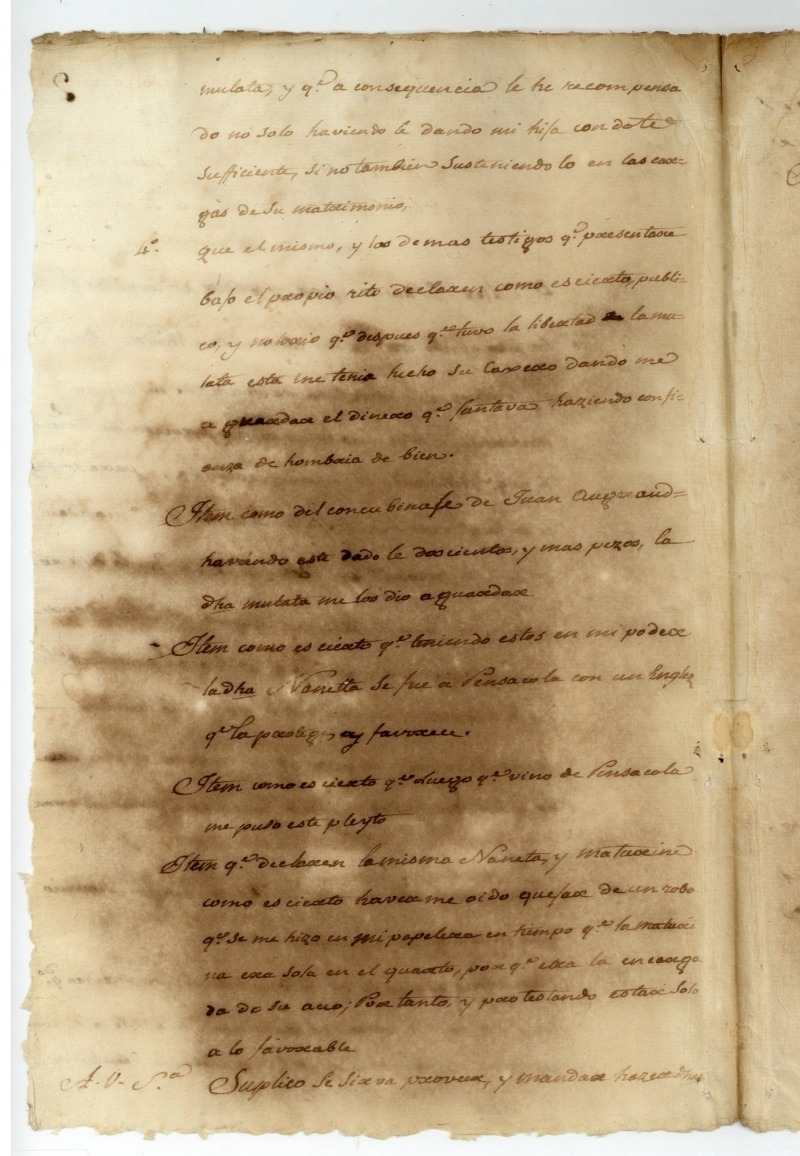 mulata, y q.e a consequencia le he recompensa
do no solo haviendo le dando mi hija con dote
sufficiente, si no tambien susteniendo lo en las car=
gas de su matrimonio,
4.o que el mismo, y los demas testigos q.e presentare
bajo el propio rito declaren como es cierto, publi=
co, y notorio q.e despues q.e tuvo la libertad la mu=
lata esta me tenia hecho su Caxero dando me
a guardar el dinero q.e juntava, haziendo confi=
anza de hombria de bien.
Item como del concubinaje de Juan
haviendo este dado le doscientos, y mas pezos, la
dha mulata me los dio a guardar
Item como es cierto q.e teniendo estos en mi poder
la dha Nanetta se fue a Pensacola con un Englez
q.e la protege, y favorece.
Item como es cierto q.e Luego q.e vino de Pensacola
me puso este pleyto
Item q.e declaren la misma Naneta, y maturine
como es cierto haverme oido quejar de un robo
q.e se me hizo en mi papelera en tiempo q.e la maturi
na era sola en el quarto, por q.e era la encarga
da de su aseo; Por tanto, y protestando estar solo
a lo favorable
A. V. S.a Suplico se sirva proveer, y mandar hazer